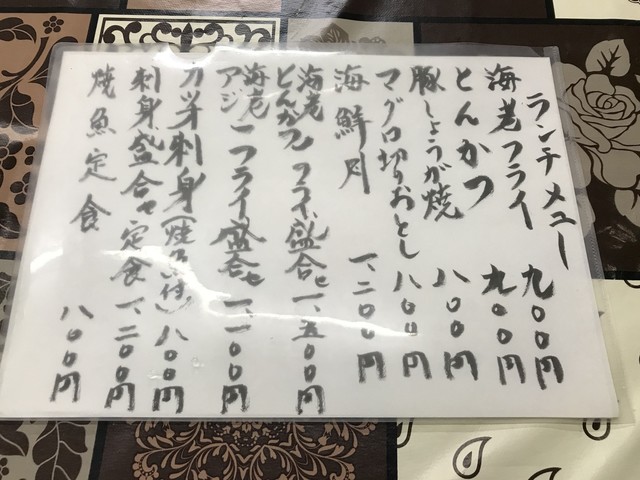 ランチメニュー
海老フライ 九〇〇円
とんかつ 九〇〇円
豚しょうが焼 八〇〇円
マグロ切りおとし 八〇〇円
海鮮丼 一、二〇〇円
海老
とんかつ フライ盛合せ 一、五〇〇円
海老
アジ フライ盛合せ 一、一〇〇円
カツオ刺身(焼魚付) 八〇〇円
刺身盛合せ定食 一、二〇〇円
焼魚定食 八〇〇円